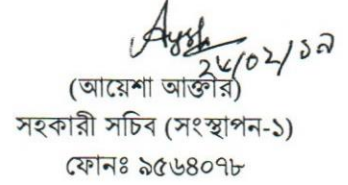 ২৮/০২/১৯
(আয়েশা আক্তার)
সহকারী সচিব (সংস্থাপন-১)
ফোনঃ ৯৫৬৪০৭৮